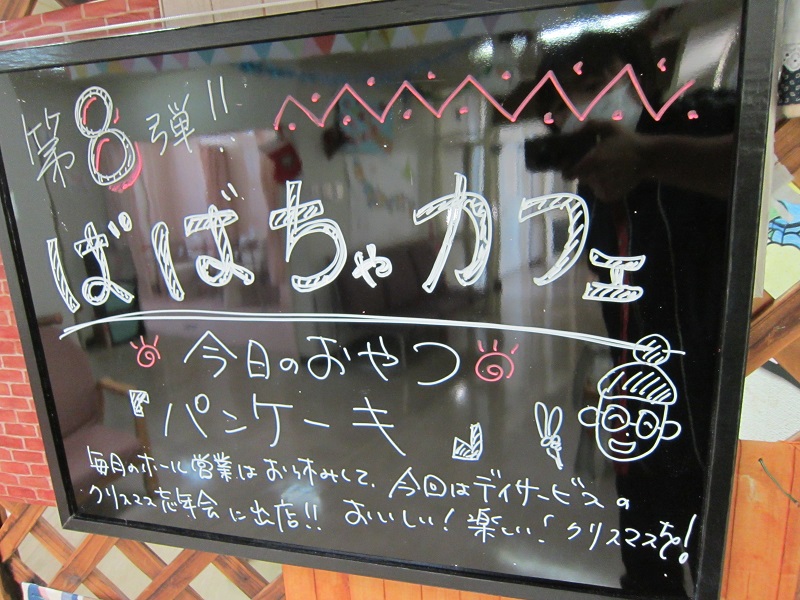 第8弾!!
ばばちゃカフェ
今日のおやつ
『パンケーキ』
毎月のホール営業はお休みして、今回はデイサービスの
クリスマス忘年会に出店!! おいしい!楽しい!クリスマスを!